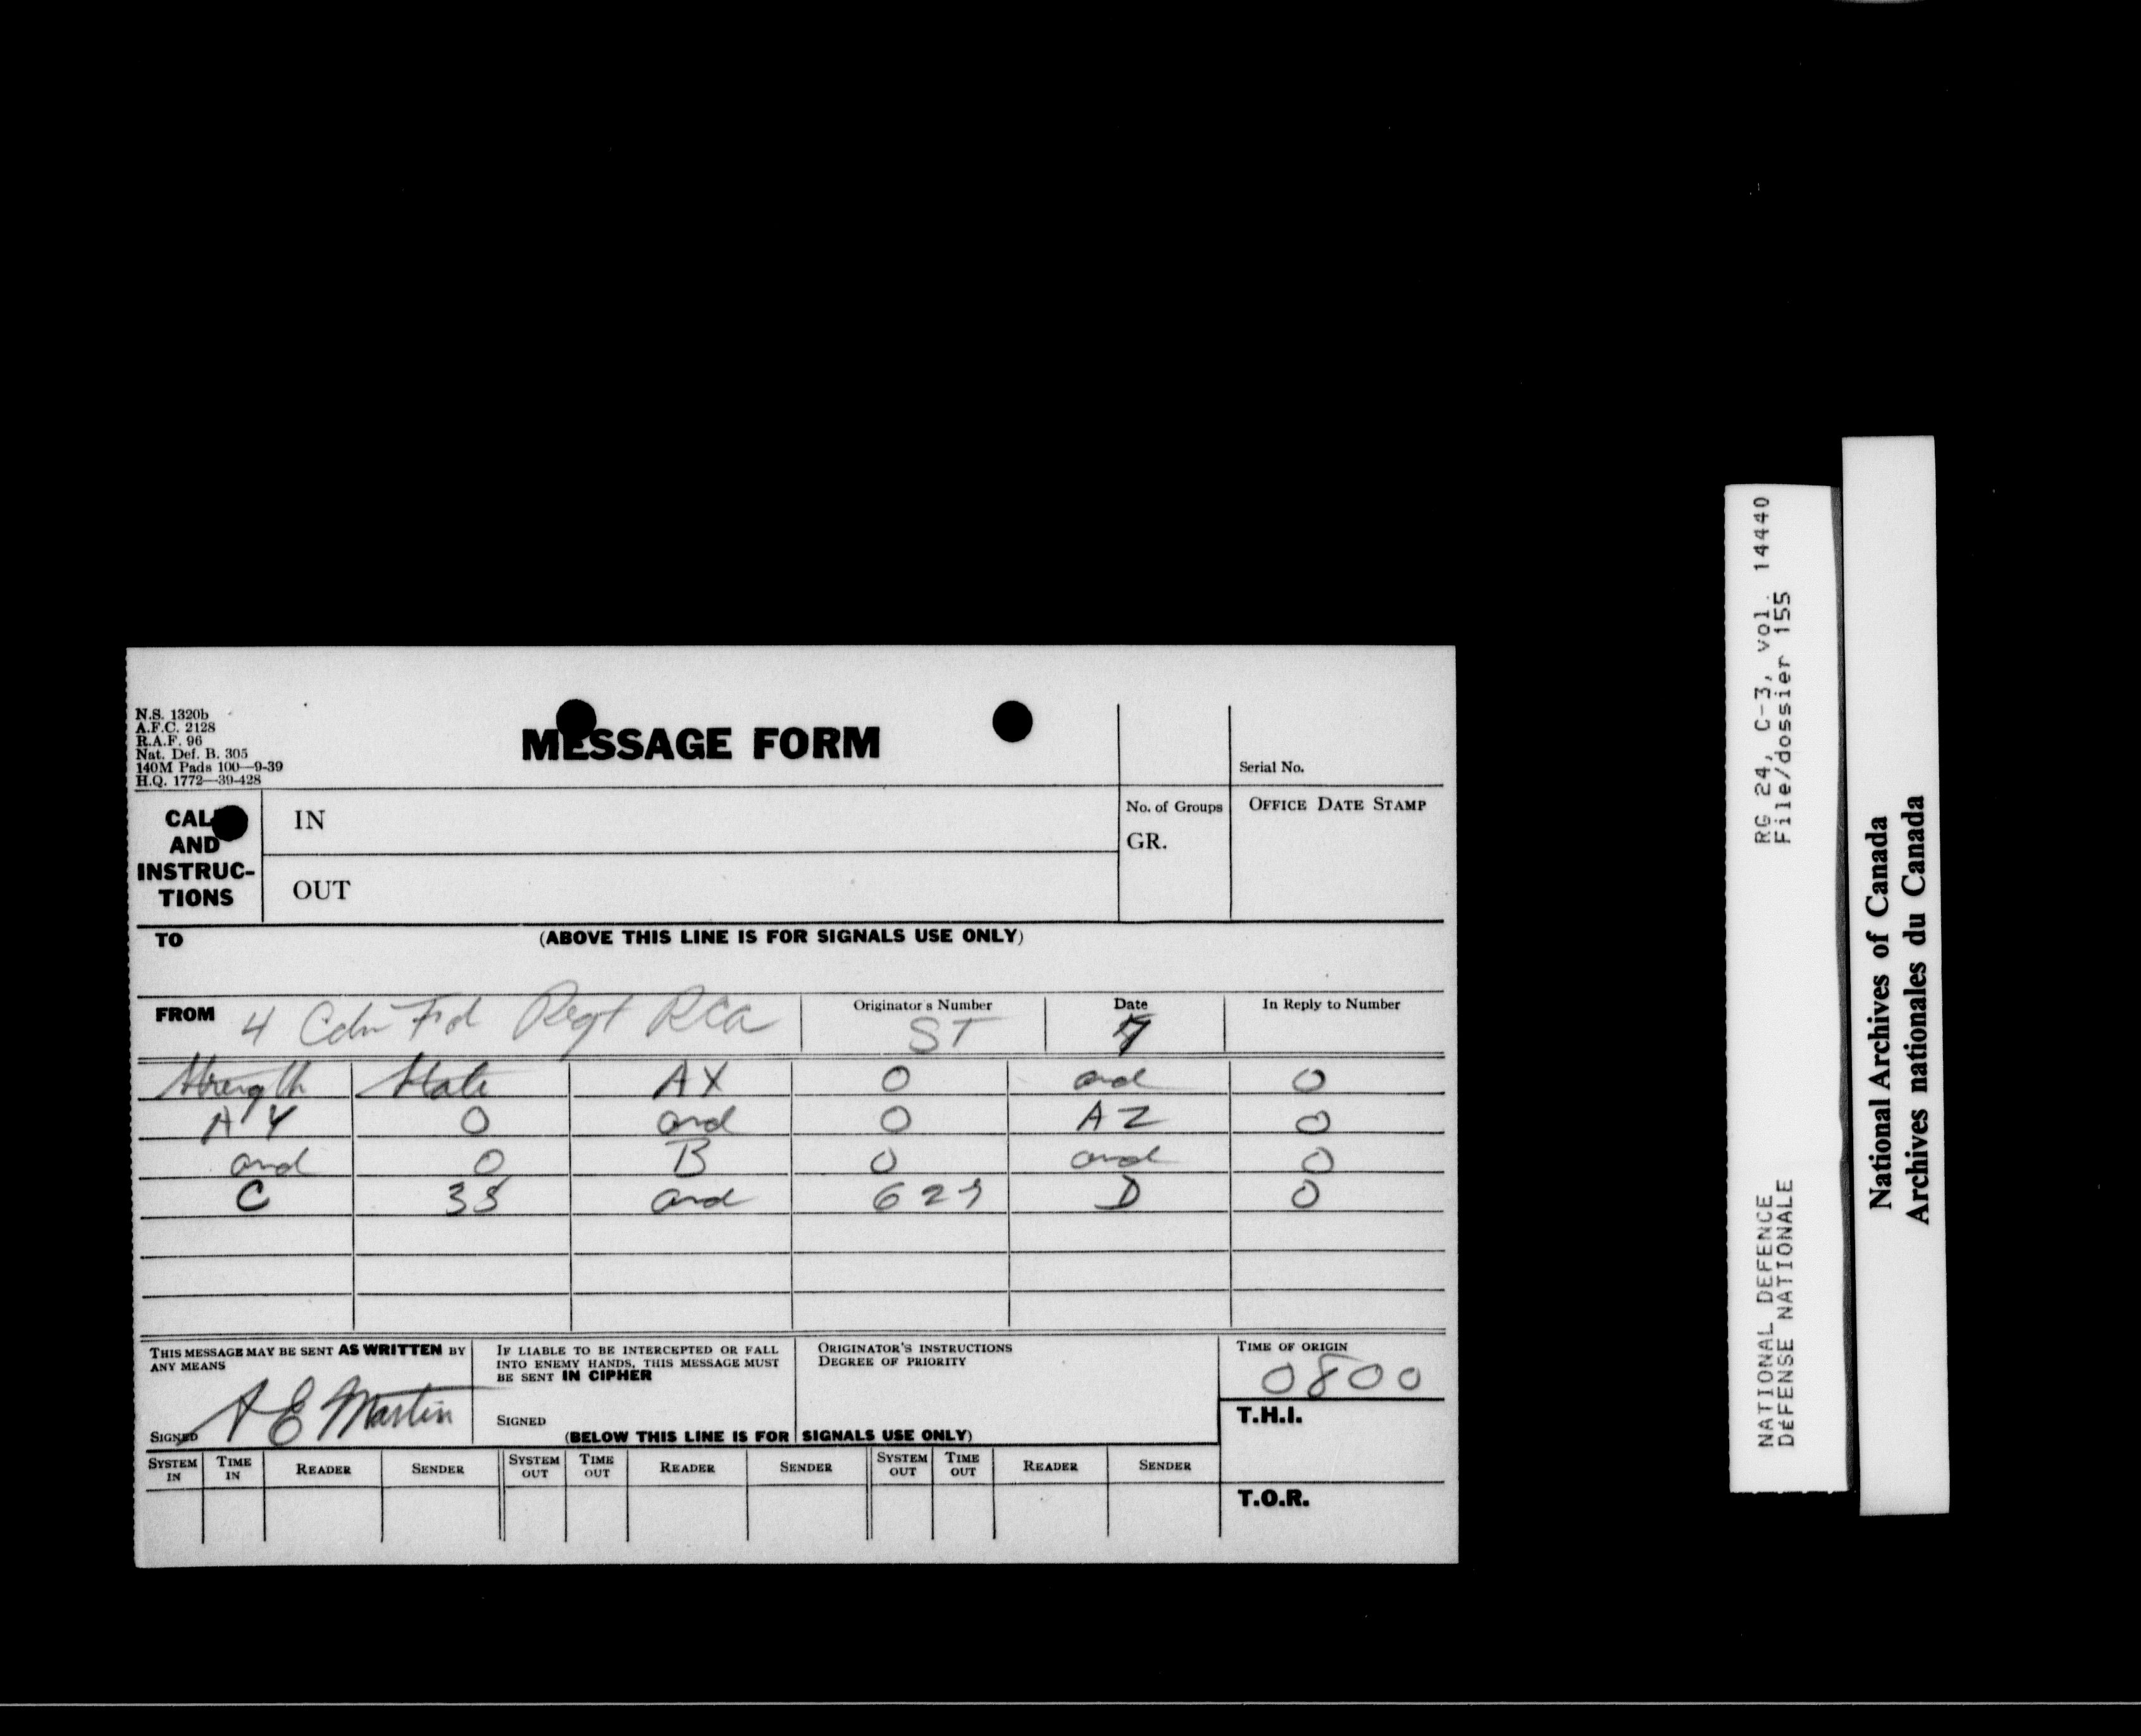 N.S. 1320b
A.F.C. 2128
R.A.F. 96
Nat. Def. B. 305
140M Pads 100—9-39
H.Q. 1772—39-428
MESSAGE FORM
Serial No.
CALL
AND
INSTRUC-
TIONS
IN
OUT
No. of Groups
GR.
OFFICE DATE STAMP
TO
(ABOVE THIS LINE IS FOR SIGNALS USE ONLY)
FROM 4 Cdn Fd Regt RCA
Originator's Number ST
Date 7
In Reply to Number
Strength State AX 0 and 0
AY 0 and 0 AZ 0
and 0 B 0 and 0
C 35 and 629 D 0
THIS MESSAGE MAY BE SENT AS WRITTEN BY
ANY MEANS
SIGNED A E Martin
IF LIABLE TO BE INTERCEPTED OR FALL
INTO ENEMY HANDS, THIS MESSAGE MUST
BE SENT IN CIPHER
SIGNED
ORIGINATOR'S INSTRUCTIONS
DEGREE OF PRIORITY
TIME OF ORIGIN
0800
T.H.I.
(BELOW THIS LINE IS FOR SIGNALS USE ONLY)
SYSTEM IN TIME IN READER SENDER SYSTEM OUT TIME OUT READER SENDER SYSTEM OUT TIME OUT READER SENDER
T.O.R.
NATIONAL DEFENCE RG 24, C-3, vol. 14440
DéFENSE NATIONALE File/dossier 155
National Archives of Canada
Archives nationales du Canada